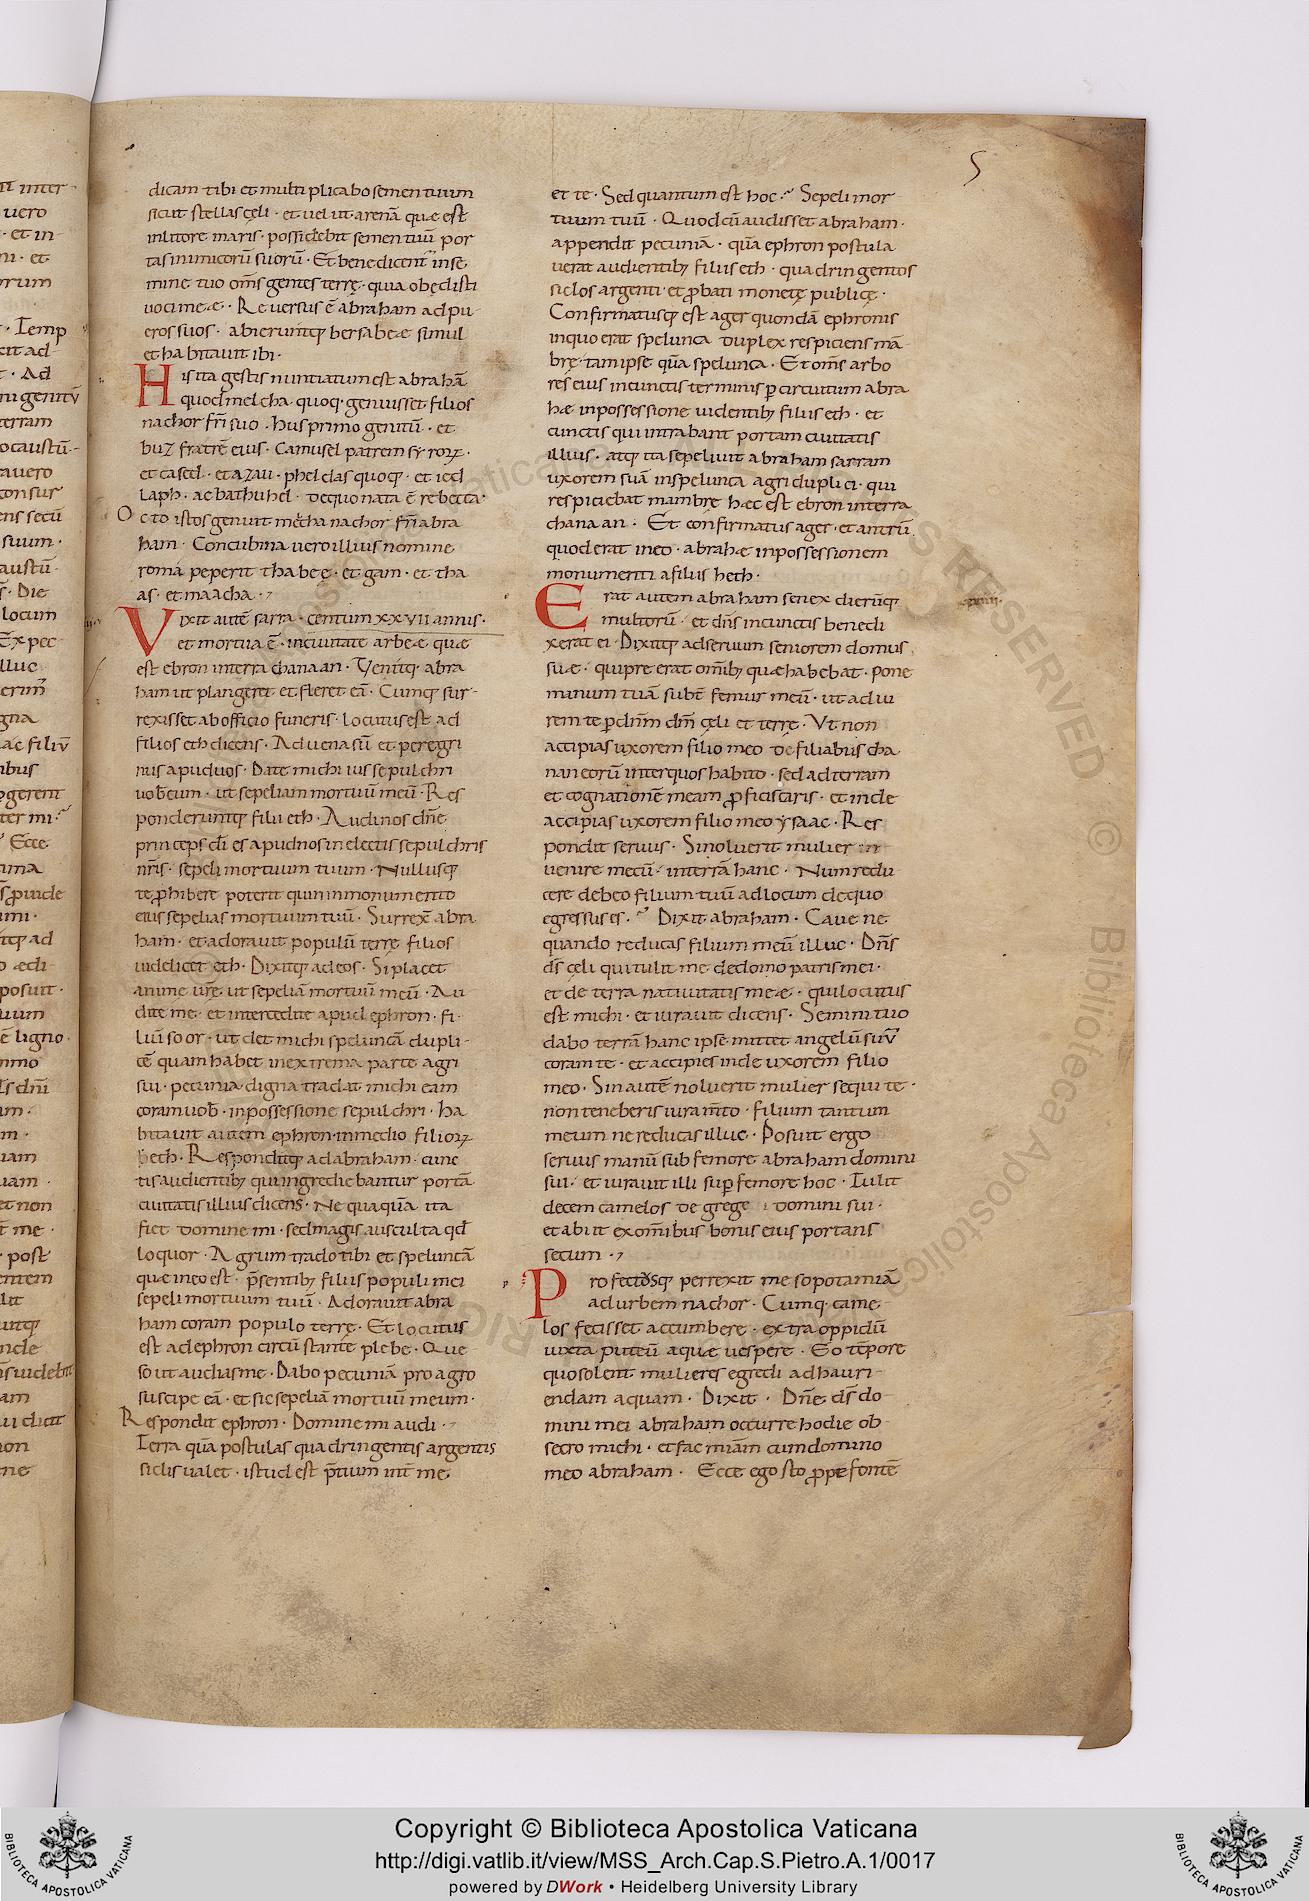 5
dicam tibi et multiplicabo semen tuum
sicut stellas cęli · et uelut arenā quæ est
inlitore maris · possidebit semen tuū por
tas inimicorū suorū · Et benedicent᷑ inse
mine tuo om̄s gentes terrę · quia obędisti
uoci meæ · Reuersus ē abraham ad pu
eros suos · abierunt q; bersabeæ simul
et habitauit ibi ·
His ita gestis nuntiatum est abrahā
quod melcha quoq; genuisset filios
nachor fr̄i suo · hus primogenitū · et
buz fratrē eius · Camusel patrem syroꝝ ·
et cased · et azau · pheldas quoq; · et ied
laph · ac bathuhel · de quo nata ē rebecca ·
Octo istos genuit melcha nachor fr̄i abra
ham · Concubina uero illius nomine
roma peperit thabeę · et gam · et tha
as · et maacha ·
Vixit autē sarra · centum xxvii annis ·
et mortua ē · inciuitate arbeæ quæ
est ebron interra chanaan · Venitq; abra
ham ut plangeret et fleret eā · Cumq; sur-
rexisset ab officio funeris · locutus est ad
filios eth dicens · Aduena sū et peregri
nus apud uos · Date michi ius sepulchri
uobcum · ut sepeliam mortuū meū · Res
ponderuntq; filii eth · Audi nos dn̄e
princeps d̄i es apud nos in electis sepulchris
nr̄is · sepeli mortuum tuum · Nullusq;
te ꝓhibere poterit quin inmonumento
eius sepelias mortuum tuū · Surrex̄ abra
ham · et adorauit populū terrę filios
uidelicet eth · Dixitq; ad eos · Si placet
animę ur̄ę ut sepeliā mortuū meū · Au
dite me · et intercedite apud ephron · fi-
liū soor · ut det michi speluncā dupli-
cē quam habet inextrema parte agri
sui · pecunia digna tradat michi eam
coram uob̄ · in possessione sepulchri · Ha
bitauit autem ephron · inmedio filioꝝ
heth · Responditq; ad abraham · cunc
tis audientib; qui ingrediebantur portā
ciuitatis illius dicens · Ne quaquā ita
fiet domine mi · sed magis ausculta qd̄
loquor · Agrum trado tibi et speluncā
quæ ineo est · p̄sentib; filiis populi mei
sepeli mortuum tuū · Adorauit abra
ham coram populo terrę · Et locutus
est ad ephron circū stante plebe · Que
so ut audias me · Dabo pecuniā pro agro
suscipe eā · et sic sepeliā mortuū meum ·
Respondit ephron · Domine mi audi ·
Terra quā postulas quadringentis argentis
siclis ualet · istud est p̄tium int̄ me
et te · Sed quantum est hoc · Sepeli mor
tuum tuū · Quod cū audisset abraham ·
appendit pecuniā · quā ephron postula
uerat audientib; filiis eth · quadringentos
siclos argenti et ꝓbati monetę publicę ·
Confirmatusq; est ager quondā ephronis
inquo erat spelunca duplex respiciens mā
brę · tam ipse quā spelunca · Et om̄s arbo
res eius incunctis terminis ꝑ circuitum abra
hæ inpossessione uidentib; filiis eth · et
cunctis qui intrabant portam ciuitatis
illius · atq; ita sepeliuit abraham sarram
uxorem suā inspelunca agri duplici · qui
respiciebat mambrę hæc est ebron interra
chanaan · Et confirmatus ager · et antrū
quod erat ineo · abrahæ inpossessionem
monumenti a filiis heth ·
Erat autem abraham senex dierūq;
multorū · et dn̄s incunctis benedi
xerat ei · Dixitq; ad seruum seniorem domus
suæ · qui pre erat omīb; quæ habebat · pone
manum tuā subt̄ femur meū · ut adiu
rem te ꝑ dn̄m dm̄ cęli et terrę · Vt non
accipias uxorem filio meo de filiabus cha
naneorū inter quos habito · sed ad terram
et cognationē meam ꝓficiscaris · et inde
accipias uxorem filio meo ysaac · Res
pondit seruus · Si noluerit mulier
uenire mecū · interrā hanc · Num redu
cere debeo filium tuū ad locum de quo
egressus es · Dixit abraham · Caue ne
quando reducas filium meū illuc · Dn̄s
d̄s cęli qui tulit me de domo patris mei ·
et de terra natiuitatis meæ · qui locutus
est michi · et iurauit dicens · Semini tuo
dabo terrā hanc ipse mittet angelū suū
coram te · et accipies inde uxorem filio
meo · Sin autē noluerit mulier sequi te ·
non teneberis iuram̄to · filium tantum
meum ne reducas illuc · Posuit ergo
seruus manū sub femore abraham domini
sui · et iurauit illi suꝑ femore hoc · Tulit
decem camelos de grege domini sui ·
et abiit ex om̄ibus bonis eius portans
secum ·
Profectusq; perrexit mesopotamiā
ad urbem nachor · Cumq; came
los fecisset accumbere · extra oppidū
iuxta puteū aquæ uespere · Eo tēpore
quo solent mulieres egredi ad hauri-
endam aquam · Dixit · Dn̄e d̄s do-
mini mei abraham occurre hodie ob-
secro michi · et fac miām cum domino
meo abraham · Ecce ego sto ꝓpe fontē
Copyright © Biblioteca Apostolica Vaticana
http://digi.vatlib.it/view/MSS_Arch.Cap.S.Pietro.A.1/0017
powered by DWork • Heidelberg University Library
BIBLIOTECA APOSTOLICA VATICANA
BIBLIOTECA APOSTOLICA VATICANA